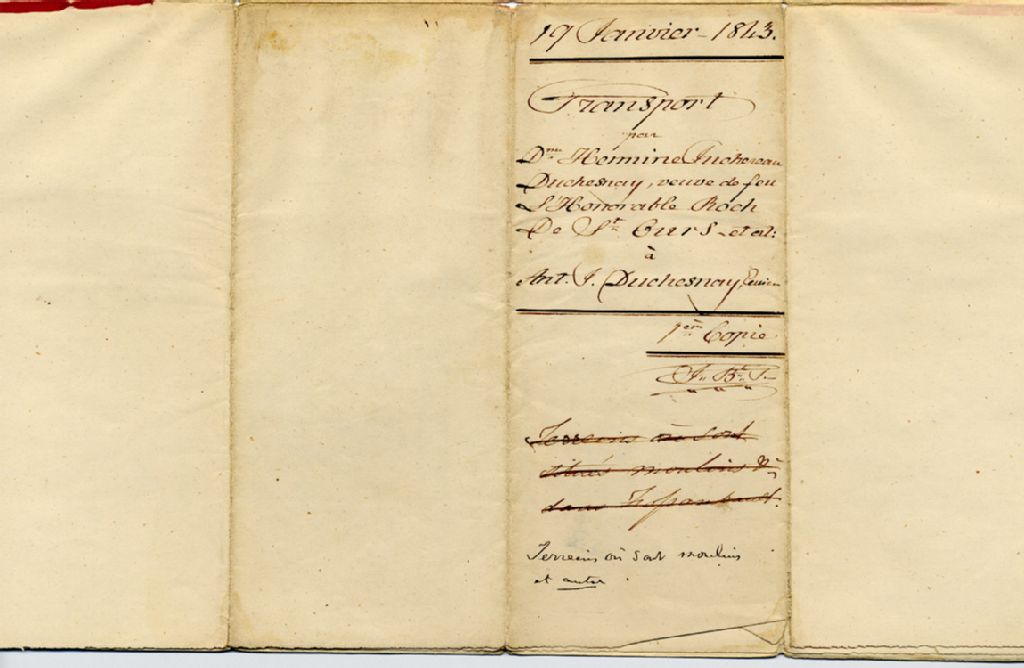 19 Janvier - 1843.
Transport
par
Dme Hermine Juchereau
Duchesnay, veuve de feu
L'Honorable Roch
De St. Ours - et al:
à
Ant. J. Duchesnay, Ecuier
1ère Copie
J. Bt. T.
Terreins où sont
situés moulins &
dans
Terreins où sont moulins
et autre